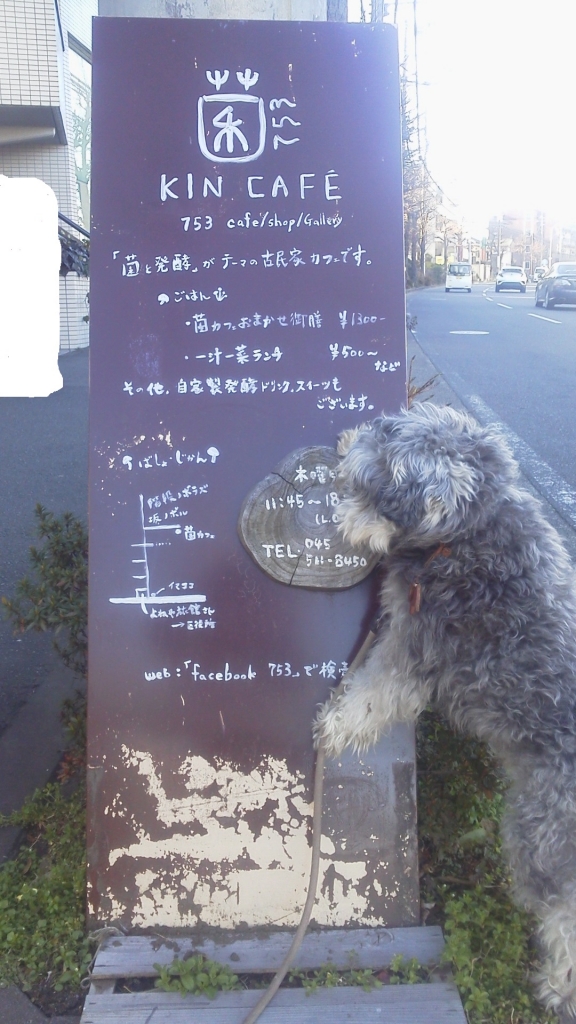 菌
753
KIN CAFÉ
753 cafe/shop/Gallery
「菌と発酵」がテーマの古民家カフェです。
ごはん
・菌カフェおまかせ御膳 ¥1300-
・一汁一菜ランチ ¥500〜
など
その他、自家製発酵ドリンク、スイーツも
ございます。
ばしょ・じかん
階段ノボラズ
坂ノボル
菌カフェ
イマココ
よねや旅館さん
→区役所
木曜
11:45〜18
(L.O
TEL. 045
511-8450
web:「facebook 753」で検